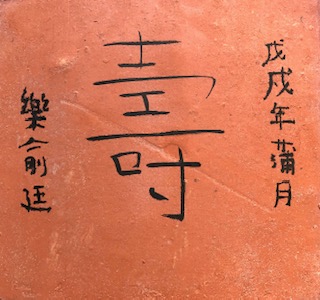 戊戌年蒲月
壽
樂俞廷